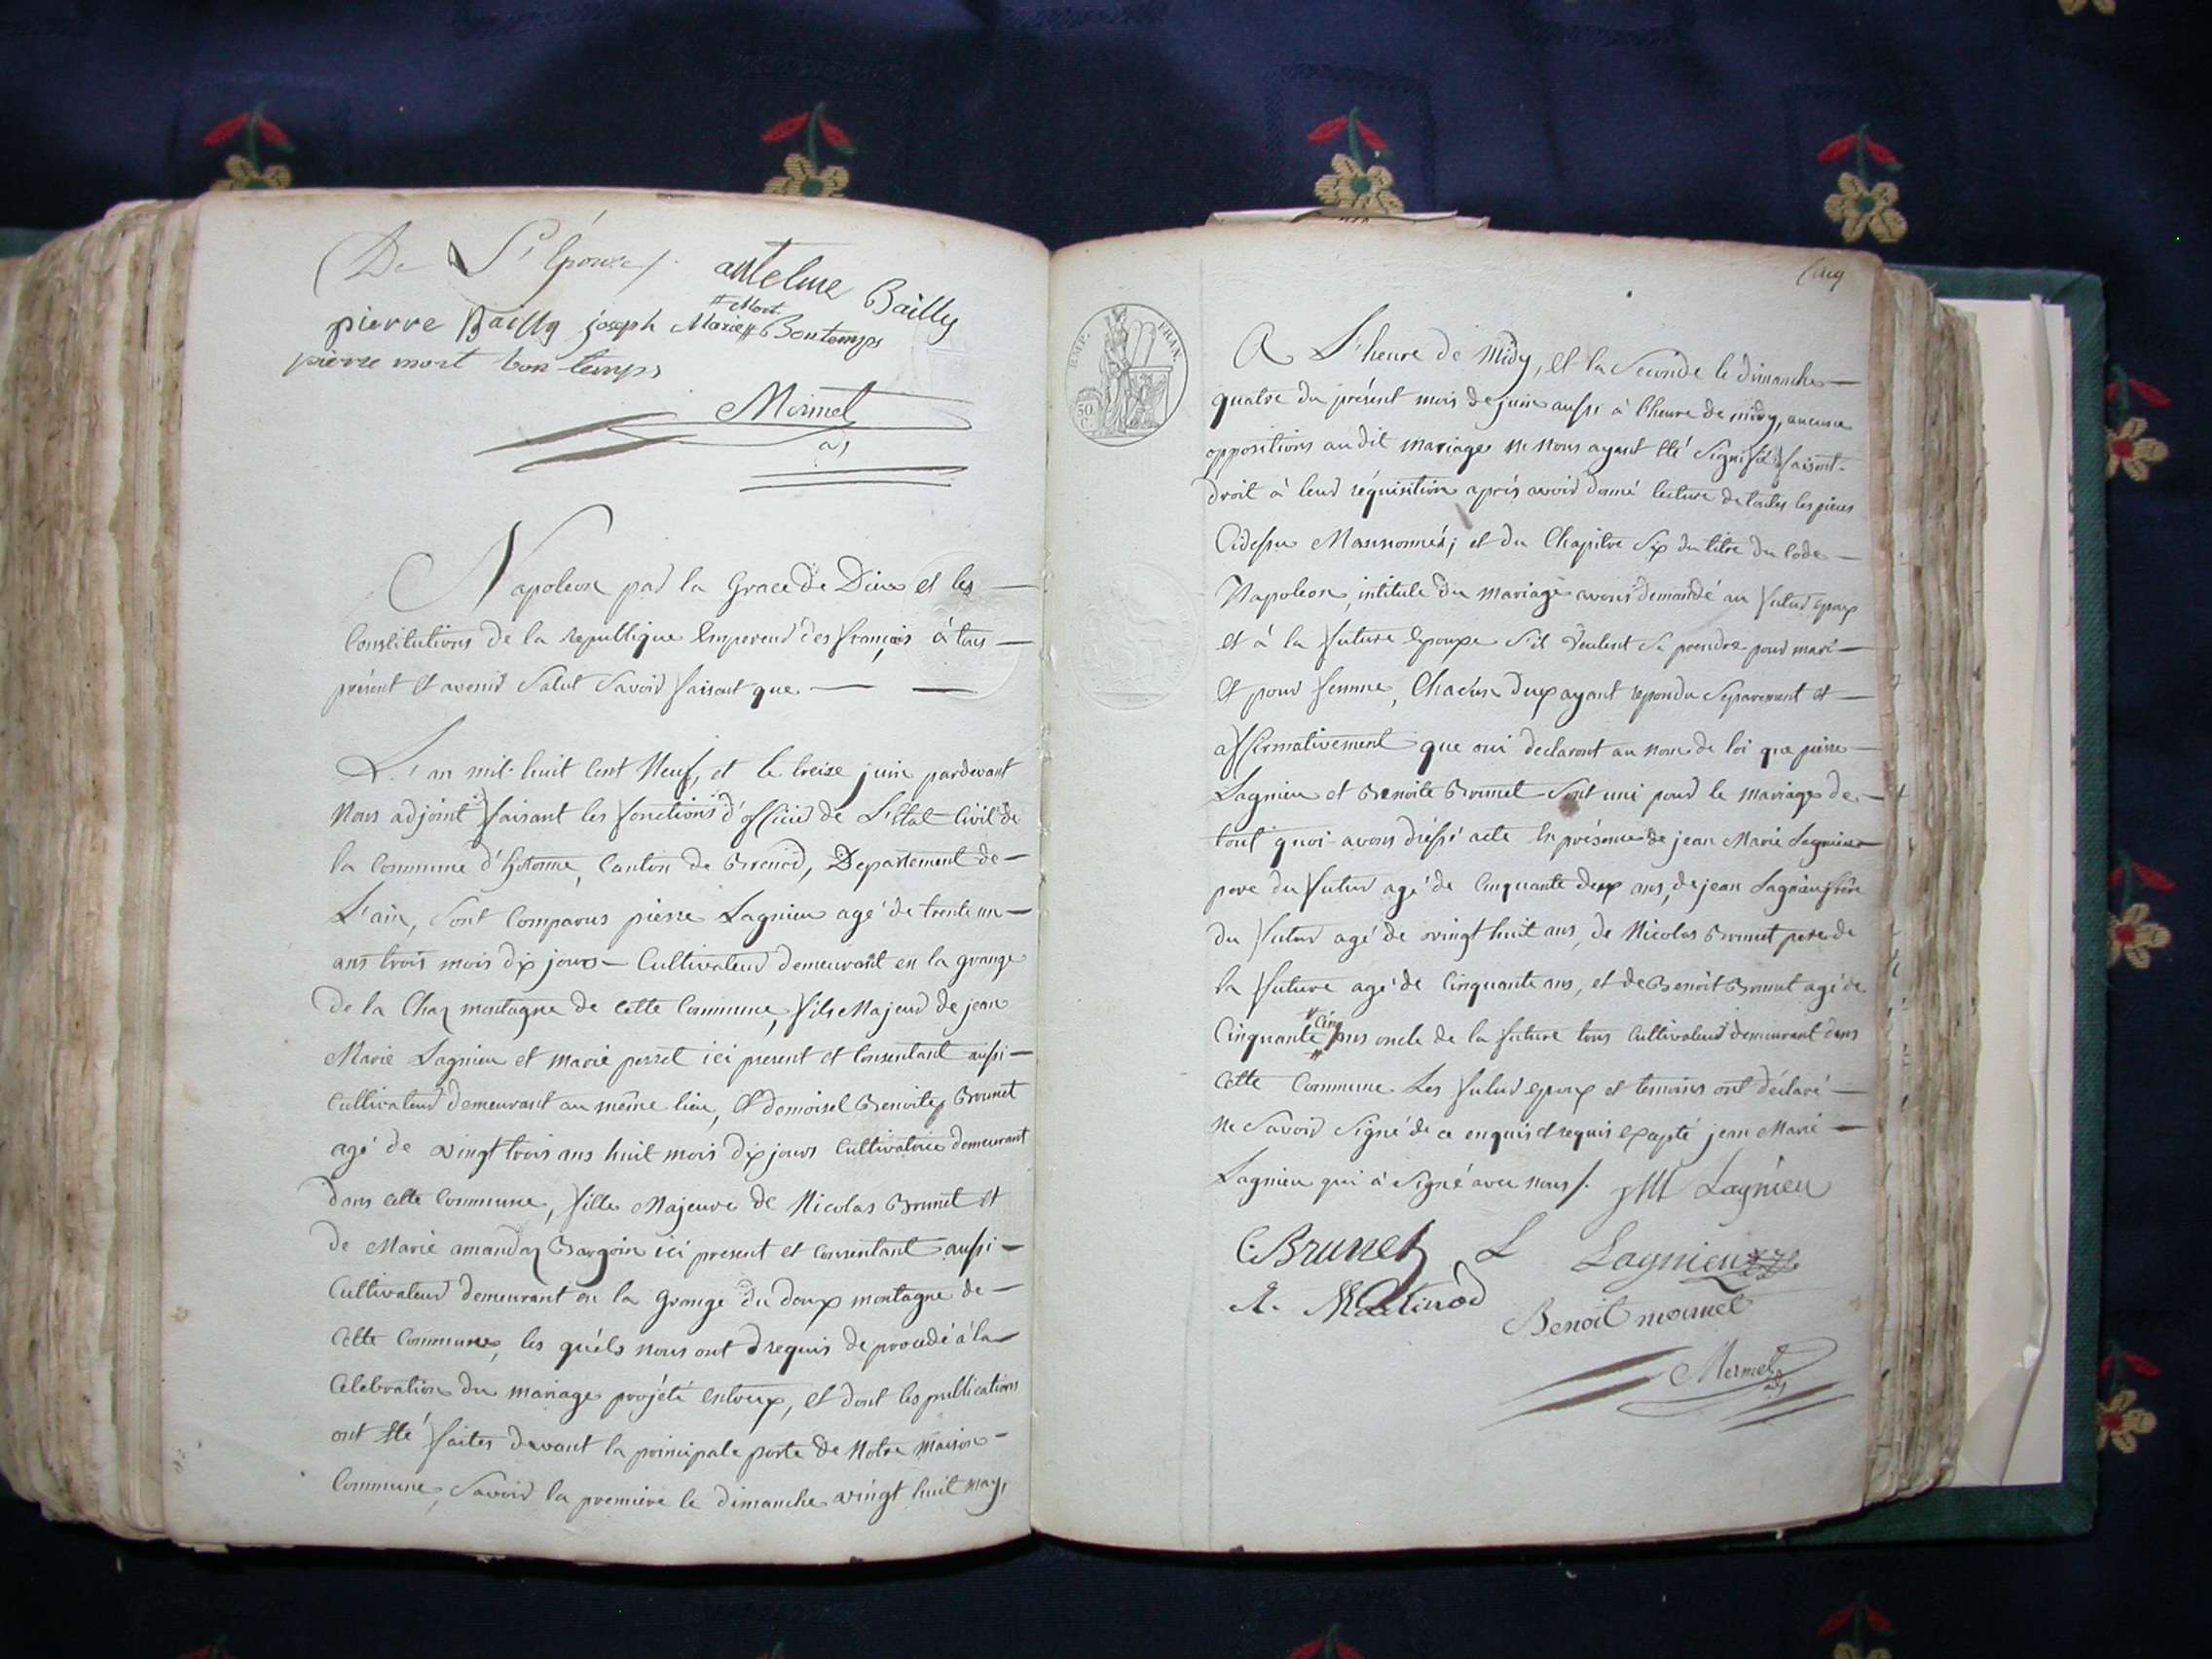 De S.t épouse /. antelme Bailly
pierre Bailly joseph Marie # Bontemps
# Mort.
pierre mort bon temps
Mermet
adj
Napoleon par la Grace de Dieu et les —
Constitutions de la republique Empereur des français à tous —
présent et avenir Salut Savoir faisont que. — —
L'an mil-huit Cent Neuf, et le treize juin pardevant
Nous adjoint faisant les fonctions d'officier de L'état Civil de
la Commune d'hotonne, Canton de Brenod, Departement de —
L'ain, Sont Comparus pierre Lagnieu agé de trente un —
ans trois mois dix jours — Cultivateur demeurant en la grange
de la Chaz montagne de cette Commune, fils Majeur de jean
Marie Lagnieu et marie perret ici present et Consentant aussi —
Cultivateur demeurant au même lieu, Et demoisel Benoite Brunet
agé de vingt trois ans huit mois dix jours Cultivatrice demeurant
dans cette Commune, fille Majeure de Nicolas Brunet et
de Marie amandaz Bargoin ici present et consentant aussi —
Cultivateur demeurant en la Grange du doux montagne de —
Cette Commune, les quéls nous ont requis de procedé à la
Célébration du mariage projété entreux, et dont les publications
ont été faites devant la principale porte de Notre maison —
Commune, Savoir la premiere le dimanche vingt huit may,
Cinq
EMP. FRAN.
50. C.
A L'heure de Midy, et la Seconde le dimanche —
quatre du présent mois de juin aussi à l'heure de midy, aucune
oppositions audit mariage ne nous ayant été Signifié faisont-
droit à leur réquisition aprés avoir donné lecture de toutes les pieces
Cidessu Mansionnés, et du Chapitre Six du titre du Code —
Napoleon, intitule du mariage avons demandé au futur epoux
et à la future Epouse S'il veulent Se prendre pour mari —
et pour femme, Chacun deux ayant repondu Séparement et —
affirmativement que oui declaront au nom de loi que pierre —
Lagnieu et Benoite Brunet Sont uni pour le mariage de —
tout quoi avons dressé acte En présence de jean Marie Lagnieu
pere du futur agé de Cinquante deux ans, de jean Lagnieu frere
du futur agé de vingt huit ans, de Nicolas Brunet pere de
la future agé de Cinquante ans, et de Benoit Brunet agé de
# Cinq
Cinquante # ans oncle de la future tous Cultivateur demeurant dans
cette Commune. Les futur epoux et temoins ont déclaré —
Ne Savoir Signé de ce enquis et requis Exapté jean Marie —
Lagnieu qui à Signé avec nous /. JM Lagnieu
C. Brunet L Lagnieu
Benoit mermet
Mermet
adj